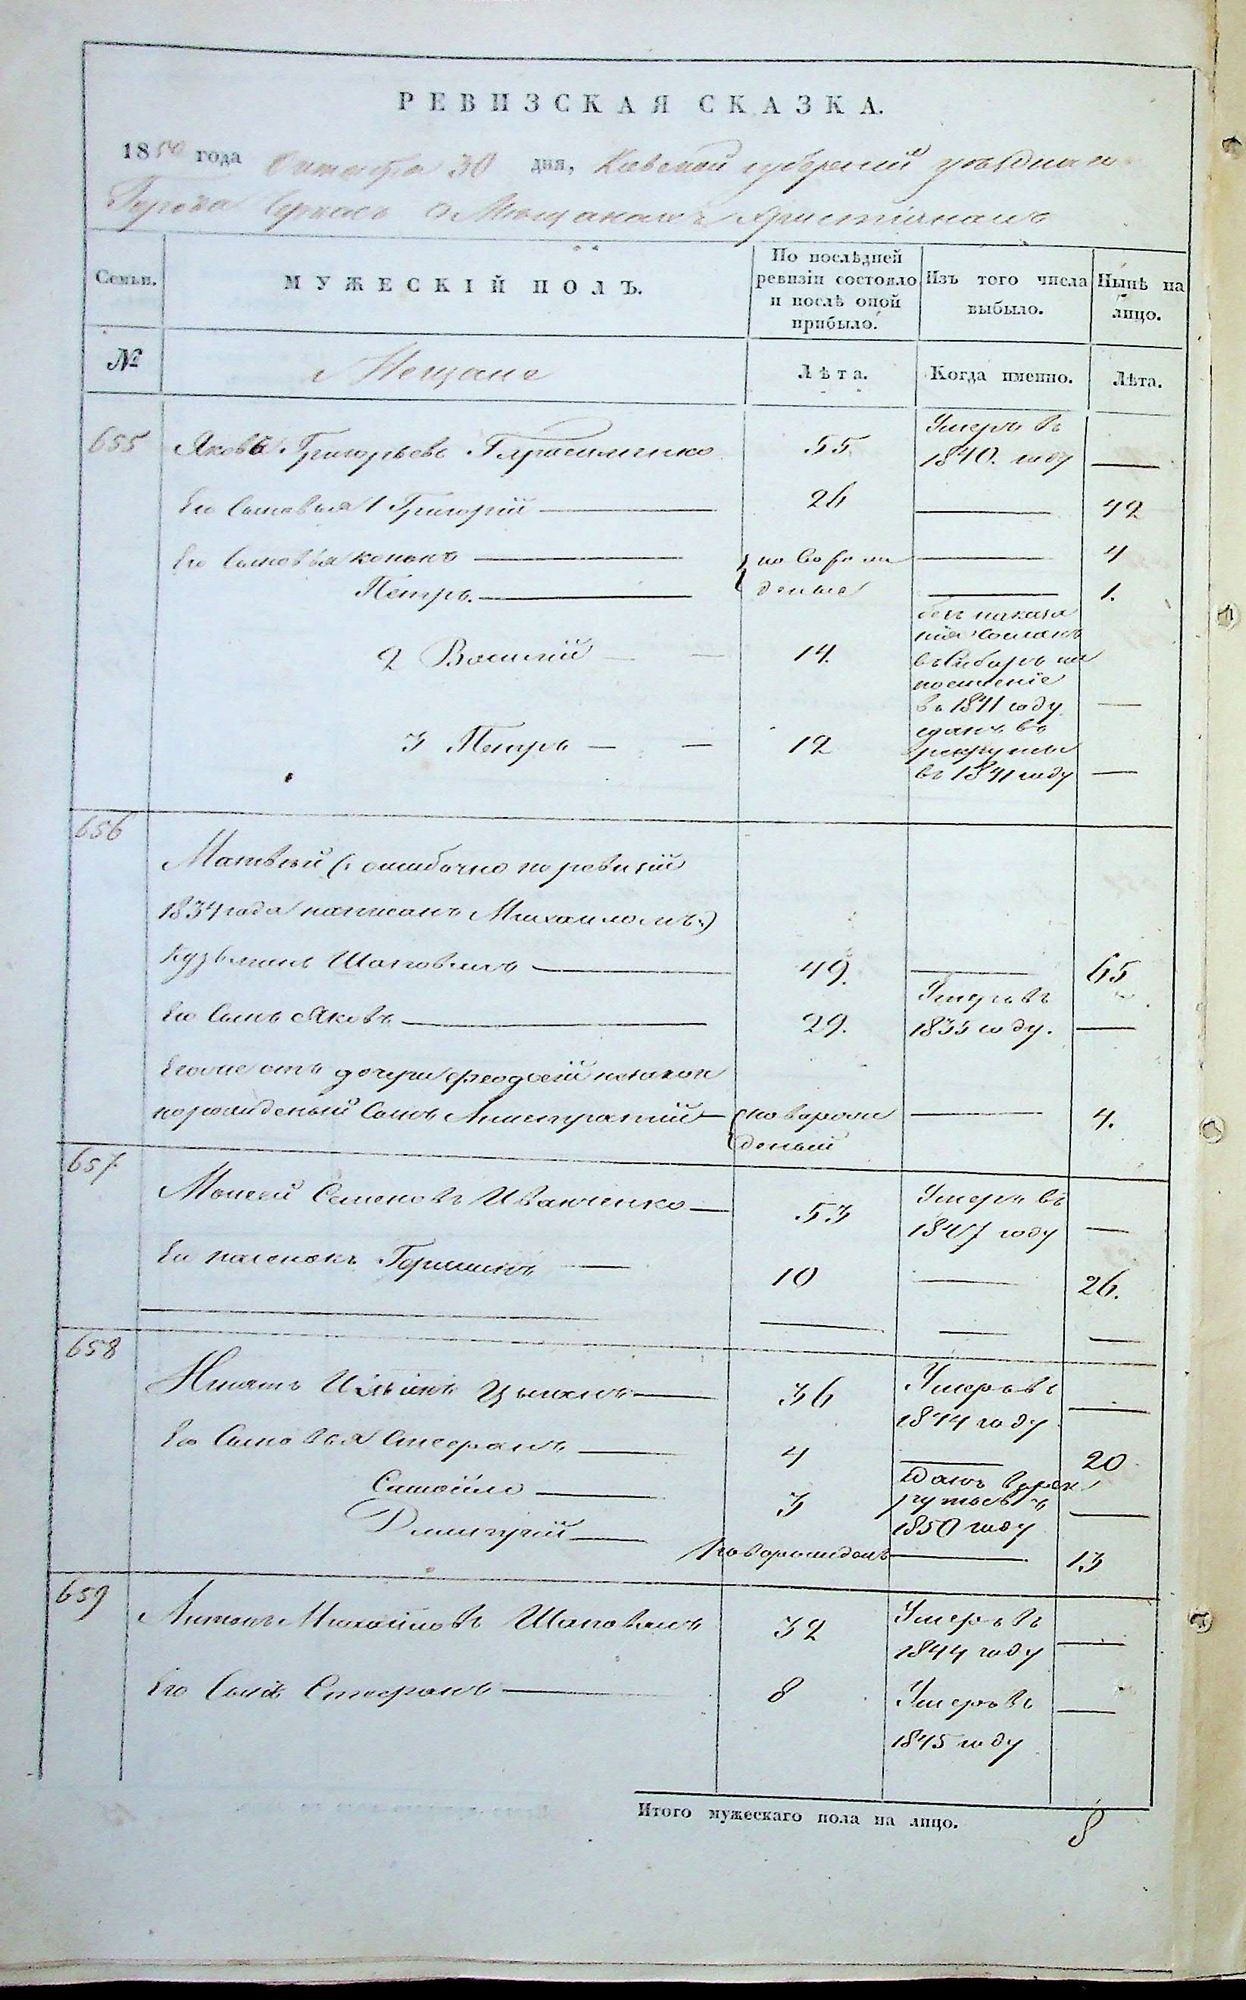 РЕВИЗСКАЯ СКАЗКА.
1850 года Октября 30 дня, Киевской губерніи уѣзднаго
Города Черкасъ о Мѣщанахъ Христіянахъ
Семьи.
МУЖЕСКІЙ ПОЛЪ.
По послѣдней ревизіи состояло и послѣ оной прибыло.
Изъ того числа выбыло.
Нынѣ на лицо.
№
Мещане
Лѣта.
Когда именно.
Лѣта.
655 Яковъ Григорьевъ Герасименко 55 Умеръ въ
1840. году —
Его Сыновья 1 Григорій — 26 — 42
Его Сыновья Кононъ — новорож — 4
Петръ. — деные — 1.
2 Василій — — 14. безъ наказа
нія сосланъ
въ Сибирь на
поселеніе
въ 1841 году —
3 Петръ — — 12 сданъ въ
рекруты
въ 1841 году —
656
Матвѣй (: ошибочно по ревизіи
1834 года написанъ Михаиломъ:)
Кузьминъ Шаповалъ — 49. — 65
Его Сынъ Яковъ — 29. Умеръ въ
1835 году. —
Его же отъ дочери Феодосіи незакон
норожденый Сынъ Калистратій — новорож — 4.
деный
657
Моисей Семеновъ Иванченко — 53 Умеръ въ
1847 году —
Его пасенокъ Герасимъ — 10 — 26.
658
Игнатъ Ильинъ Цыганъ — 36 Умеръ въ
1844 году —
Его Сыновья Стефанъ — 4 — 20
Самойло — 3 сданъ въ рек
руты въ
1850 году —
Дмитрій — новорожденъ — 13
659 Антонъ Михайловъ Шаповалъ 32 Умеръ въ
1844 году —
Его Сынъ Стефанъ — 8 Умеръ въ
1845 году —
Итого мужескаго пола на лицо. 8